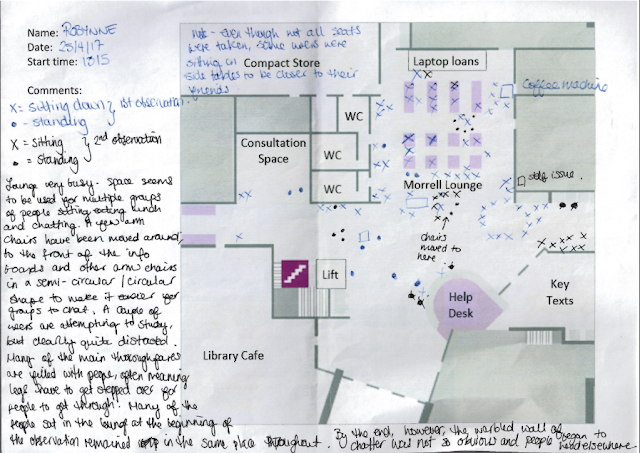 Name: ROBYNNE
Date: 25/4/17
Start time: 1315
Comments:
X = sitting down } 1st observation.
• - standing
X = sitting } 2nd observation
• = standing
Lounge very busy - space seems
to be used for multiple groups
of people sitting eating lunch
and chatting. A few arm
chairs have been moved around,
to the front of the info
boards and other arm chairs
in a semi-circular / circular
shape to make it easier for
groups to chat. A couple of
users are attempting to study,
but clearly quite distracted.
Many of the main thoroughfares
are filled with people, often meaning
legs have to get stepped over for
people to get through! Many of the
people sat in the lounge at the beginning of
the observation remained in the same place throughout.
By the end, however, the warbled wall of
chatter was not so obvious and people began to
head elsewhere.
note - even though not all seats
were taken, some users were
sitting on
side tables to be closer to their
friends
Compact Store
Laptop loans
Coffee machine
WC
Consultation
Space
WC
WC
Morrell Lounge
self issue.
chairs
moved to
here.
Lift
Help
Desk
Key
Texts
Library Cafe